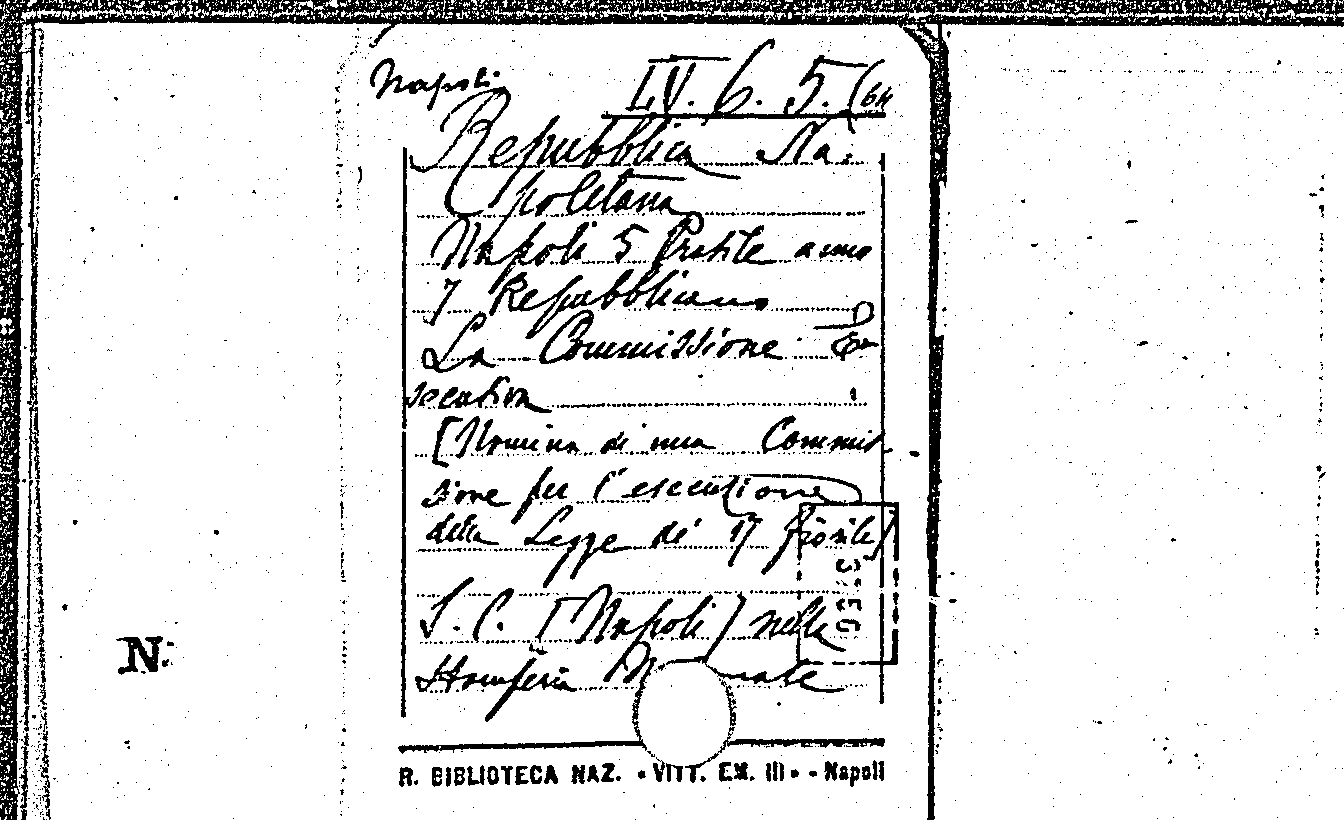 Napoli
LV. 6. 5. (64
Repubblica Na:
poletana
Napoli 5 Pratile anno
7 Repubblicano
La Commissione E
secutiva
[Nomina di una Commis
sione per l'esecuzione
della Legge de' 17 fiorile]
S. C. [Napoli] nella
Stamperia
N.
R. BIBLIOTECA NAZ. • VITT. EM. III • - Napoli